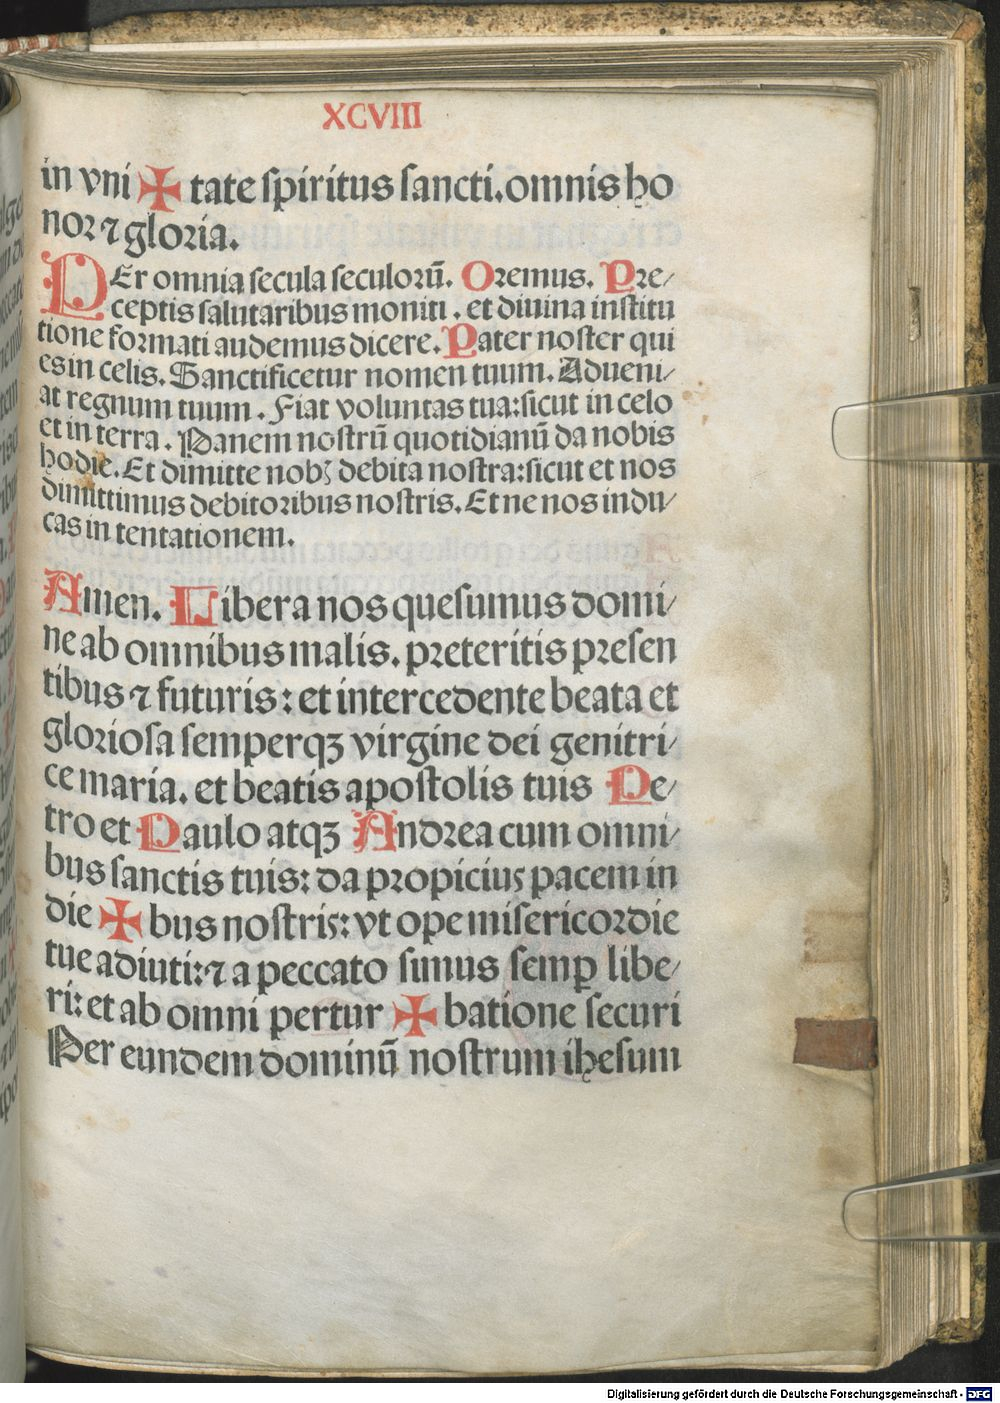 XCVIII
in vni ✠ tate spiritus sancti. omnis ho
nor ⁊ gloria.
PEr omnia secula seculorū. Oremus. Pre/
ceptis salutaribus moniti . et diuina institu
tione formati audemus dicere. Pater noster qui
es in celis. Sanctificetur nomen tuum. Adueni/
at regnum tuum . Fiat voluntas tua: sicut in celo
et in terra . Panem nostrū quotidianū da nobis
hodie. Et dimitte nobꝫ debita nostra: sicut et nos
dimittimus debitoribus nostris. Et ne nos indu/
cas in tentationem.
Amen. Libera nos quesumus domi/
ne ab omnibus malis. preteritis presen
tibus ⁊ futuris: et intercedente beata et
gloriosa semperqꝫ virgine dei genitri/
ce maria. et beatis apostolis tuis Pe/
tro et Paulo atqꝫ Andrea cum omni/
bus sanctis tuis: da propicius pacem in
die ✠ bus nostris: vt ope misericordie
tue adiuti: ⁊ a peccato simus semꝑ libe/
ri: et ab omni pertur ✠ batione securi
Per eundem dominū nostrum ihesum
Digitalisierung gefördert durch die Deutsche Forschungsgemeinschaft - DFG